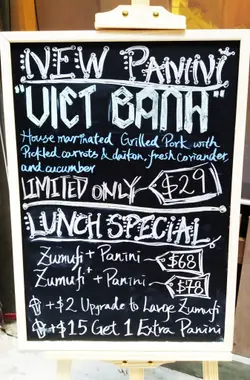 NEW PANINI
"VIET BANH"
House marinated Grilled Pork with
Pickled carrots & daikon, fresh coriander
and cucumber
LIMITED ONLY $29
LUNCH SPECIAL
Zumuji + Panini $68
Zumuji+ + Panini $78
+$2 Upgrade to Large Zumuji
+$15 Get 1 Extra Panini